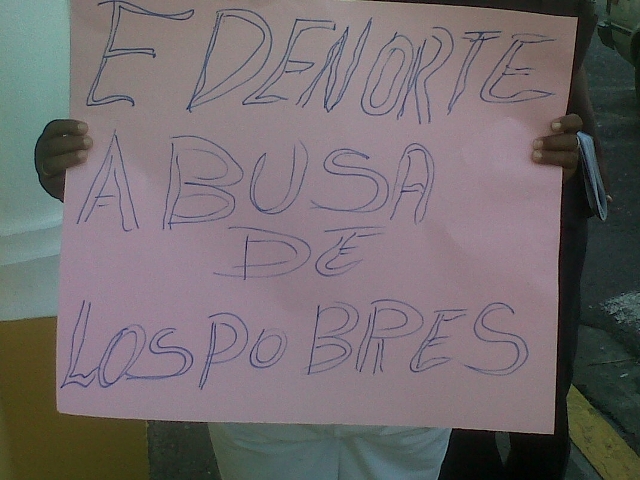 EDENORTE
ABUSA
DE
LOS POBRES